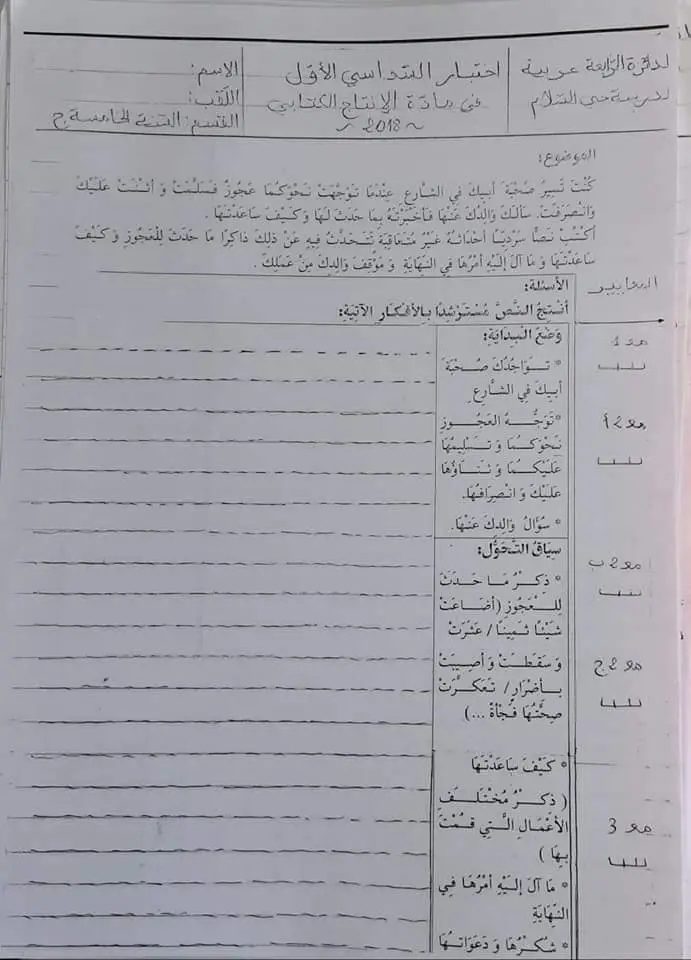 لدائرة الرابعة عربية
لمدرسة حي السلام
اختبار الثلاثي الأول
في مادة الإنتاج الكتابي
~ 2018 ~
الاسم:
اللقب:
القسم: السنة الخامسة ج
الموضوع:
كُنْتَ تَسِيرُ صُحْبَةَ أَبِيكَ فِي الشَّارِعِ عِنْدَمَا تَوَجَّهَتْ نَحْوَكُمَا عَجُوزٌ فَسَلَّمَتْ وَ أَثْنَتْ عَلَيْكَ
وَانْصَرَفَتْ. سَأَلَكَ وَالِدُكَ عَنْهَا فَأَخْبَرْتَهُ بِمَا حَدَثَ لَهَا وَ كَيْفَ سَاعَدْتَهَا .
أُكْتُبْ نَصًّا سَرْدِيًّا أَحْدَاثُهُ غَيْرُ مُتَعَاقِبَةٍ تَتَحَدَّثُ فِيهِ عَنْ ذَلِكَ ذَاكِرًا مَا حَدَثَ لِلْعَجُوزِ وَ كَيْفَ
سَاعَدْتَهَا وَ مَا آلَ إِلَيْهِ أَمْرُهَا فِي النِّهَايَةِ وَ مَوْقِفَ وَالِدِكَ مِنْ عَمَلِكَ .
المعايير
الأسئلة:
أُنْتِجُ النَّصَّ مُسْتَرْشِدًا بِالأَفْكَارِ الآتِيَةِ:
وَضْعُ الْبِدَايَةِ:
* تَوَاجُدُكَ صُحْبَةَ
أَبِيكَ فِي الشَّارِعِ
*تَوَجُّهُ الْعَجُوزِ
نَحْوَكُمَا وَ تَسْلِيمُهَا
عَلَيْكُمَا وَ ثَنَاؤُهَا
عَلَيْكَ وَ انْصِرَافُهَا.
* سُؤَالُ وَالِدِكَ عَنْهَا.
مع 1
مع 2 أ
سِيَاقُ التَّحَوُّلِ:
* ذِكْرُ مَا حَدَثَ
لِلْعَجُوزِ (أَضَاعَتْ
شَيْئًا ثَمِينًا / عَثَرَتْ
وَ سَقَطَتْ وَ أُصِيبَتْ
بِأَضْرَارٍ / تَعَكَّرَتْ
صِحَّتُهَا فَجْأَةً ...)
مع 2 ب
مع 2 ج
* كَيْفَ سَاعَدْتَهَا
( ذِكْرُ مُخْتَلَفِ
الأَعْمَالِ الَّتِي قُمْتَ
بِهَا )
* مَا آلَ إِلَيْهِ أَمْرُهَا فِي
النِّهَايَةِ
* شُكْرُهَا وَ دَعَوَاتُهَا
مع 3